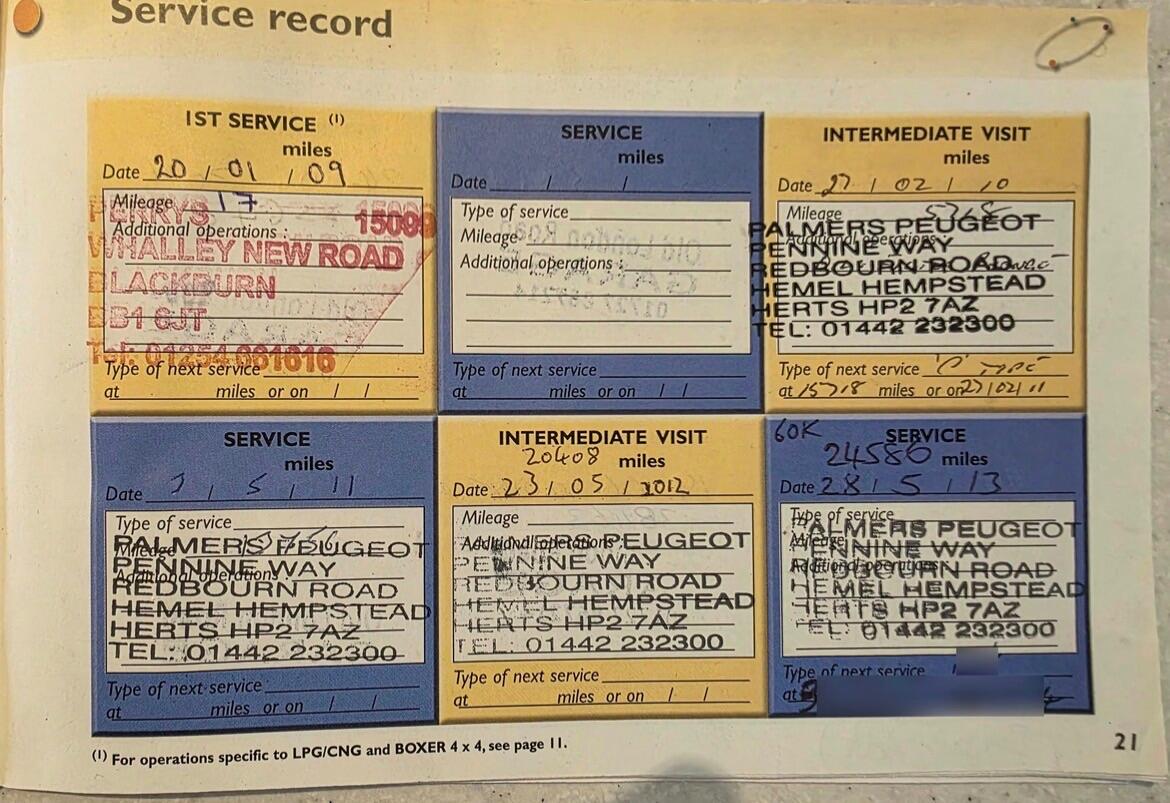 Service record
1ST SERVICE (1)
miles
Date 20 / 01 / 09
Mileage 17
PERRYS 15099
Additional operations :
WHALLEY NEW ROAD
BLACKBURN
BB1 6JT
Tel: 01254 661616
Type of next service
at miles or on / /
SERVICE
miles
Date / /
Type of service
Mileage
Additional operations :
Type of next service
at miles or on / /
INTERMEDIATE VISIT
miles
Date 27 / 02 / 10
Mileage 5718
PALMERS PEUGEOT
Additional operations
PENNINE WAY
REDBOURN ROAD
HEMEL HEMPSTEAD
HERTS HP2 7AZ
TEL: 01442 232300
Type of next service 'C' TYPE
at 15718 miles or on 27/02/11
SERVICE
miles
Date 3 / 5 / 11
Type of service
PALMERS PEUGEOT
Mileage
PENNINE WAY
Additional operations :
REDBOURN ROAD
HEMEL HEMPSTEAD
HERTS HP2 7AZ
TEL: 01442 232300
Type of next service :
at miles or on / /
INTERMEDIATE VISIT
20408 miles
Date 23 / 05 / 2012
Mileage
Additional operations :
PEUGEOT
PENNINE WAY
REDBOURN ROAD
HEMEL HEMPSTEAD
HERTS HP2 7AZ
TEL: 01442 232300
Type of next service
at miles or on / /
60K SERVICE
24586 miles
Date 28 / 5 / 13
Type of service
PALMERS PEUGEOT
Mileage
PENNINE WAY
Additional operations
REDBOURN ROAD
HEMEL HEMPSTEAD
HERTS HP2 7AZ
TEL: 01442 232300
Type of next service
at
(1) For operations specific to LPG/CNG and BOXER 4 x 4, see page 11.
21